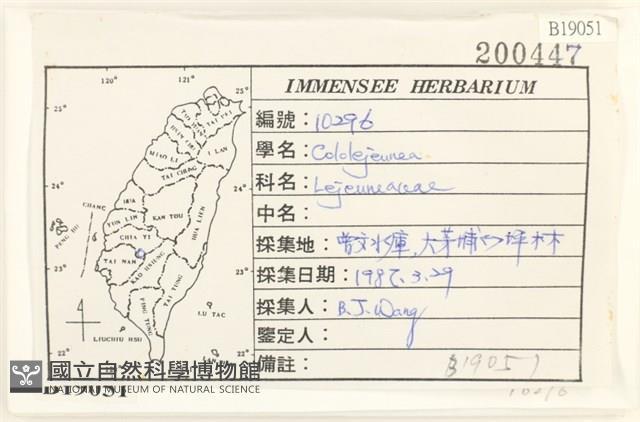 B19051
200447
IMMENSEE HERBARIUM
編號：10296
學名：Cololejeunea
科名：Lejeuneaceae
中名：
採集地：曾文水庫,大茅埔
採集日期：1987.3.29
採集人：B.J.Wang
鑒定人：
備註：B19051
120°
121°
25°
25°
24°
24°
23°
23°
22°
TAI PEI
I LAN
MIAO LI
TAI CHUNG
CHANG
HUA
NAN TOU
YUN LIN
HUA LIEN
PENG HU
CHIA YI
TAI NAN
KAO HSIUNG
TAI TUNG
PING TUNG
LU TAO
LIUCHIU HSU
國立自然科學博物館
NATIONAL MUSEUM OF NATURAL SCIENCE
B19051